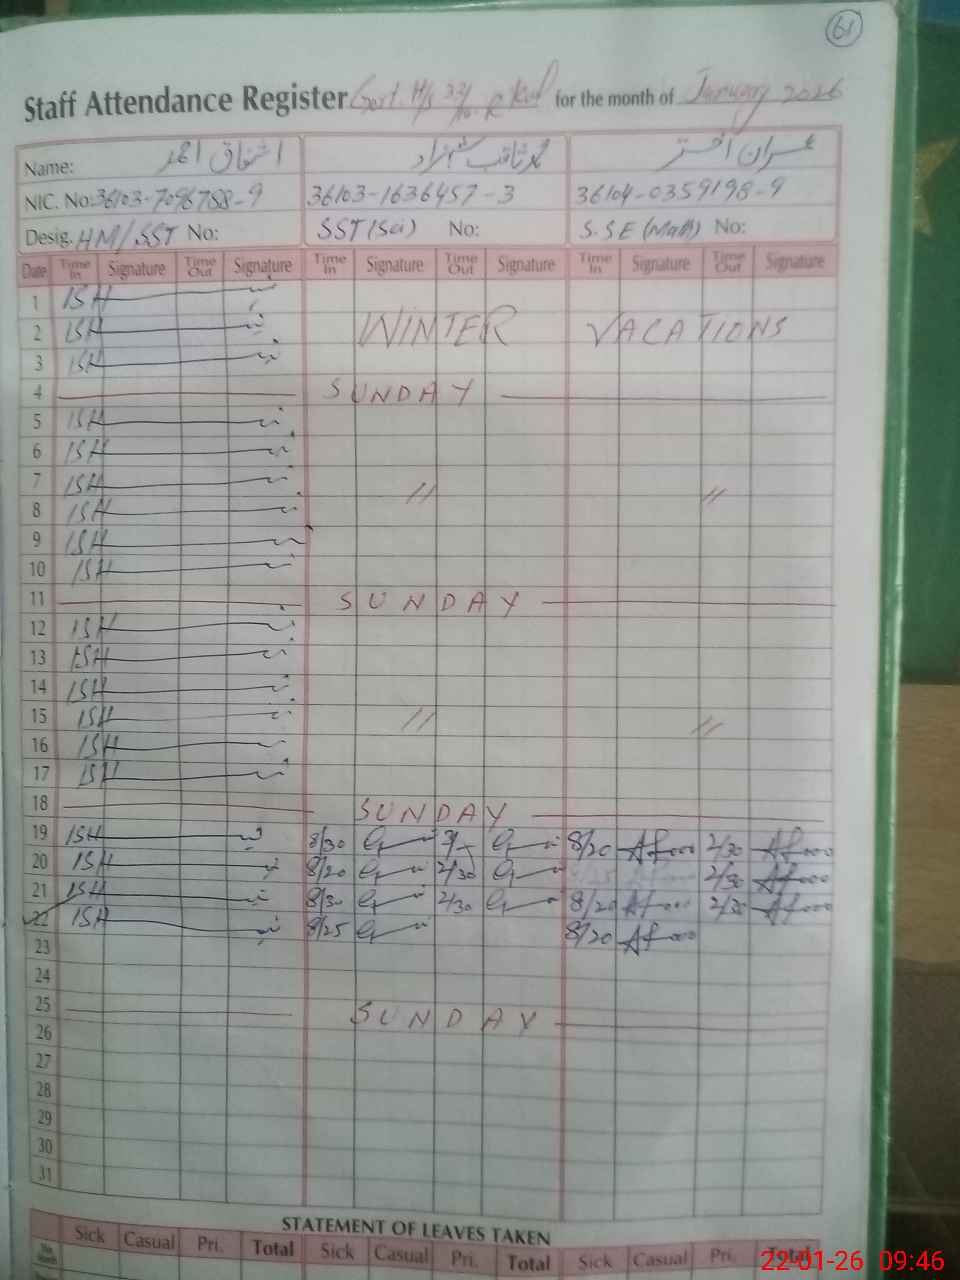 61
Staff Attendance Register Govt. H/S 33/10-R Kwl for the month of January 2026
Name: اشفاق احمد محمد ثاقب شہزاد عمران اختر
NIC. No: 36103-7096788-9 36103-1636457-3 36104-0359198-9
Desig. HM/SST No: SST(Sci) No: S.S.E (Math) No:
Date Time In Signature Time Out Signature Time In Signature Time Out Signature Time In Signature Time Out Signature
1 ISH
2 ISH WINTER VACATIONS
3 ISH
4 SUNDAY
5 ISH
6 ISH
7 ISH // //
8 ISH
9 ISH
10 ISH
11 SUNDAY
12 ISH
13 ISH
14 ISH
15 ISH // //
16 ISH
17 ISH
18 SUNDAY
19 ISH 8/30 8/20 2/30
20 ISH 8/20 2/30 2/30
21 ISH 8/30 2/30 8/20 2/30
22 ISH 8/25 8/20
23
24
25 SUNDAY
26
27
28
29
30
31
STATEMENT OF LEAVES TAKEN
Sick Casual Pri. Total Sick Casual Pri. Total Sick Casual Pri. Total
22-01-26 09:46